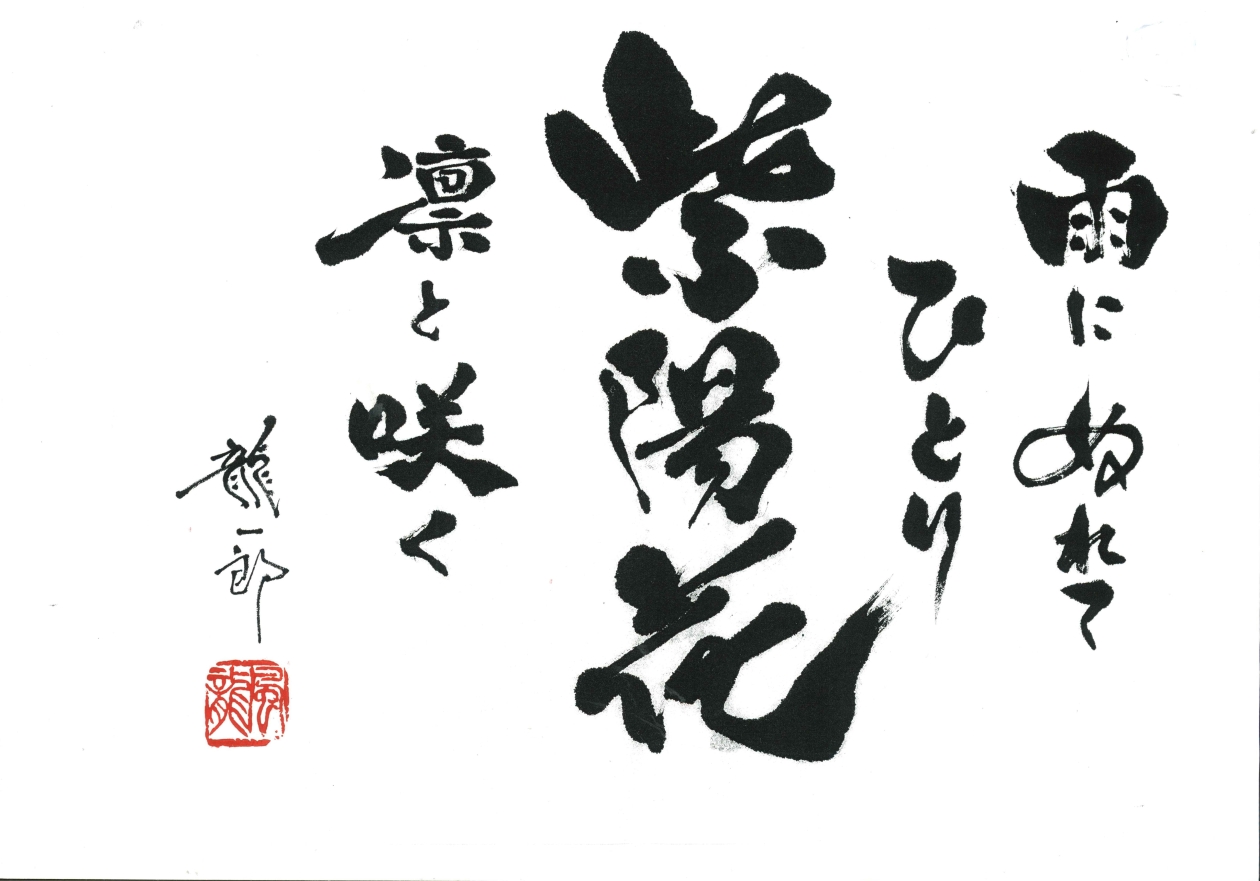 雨にぬれて
ひとり
紫陽花
凛と咲く
龍一郎
風龍